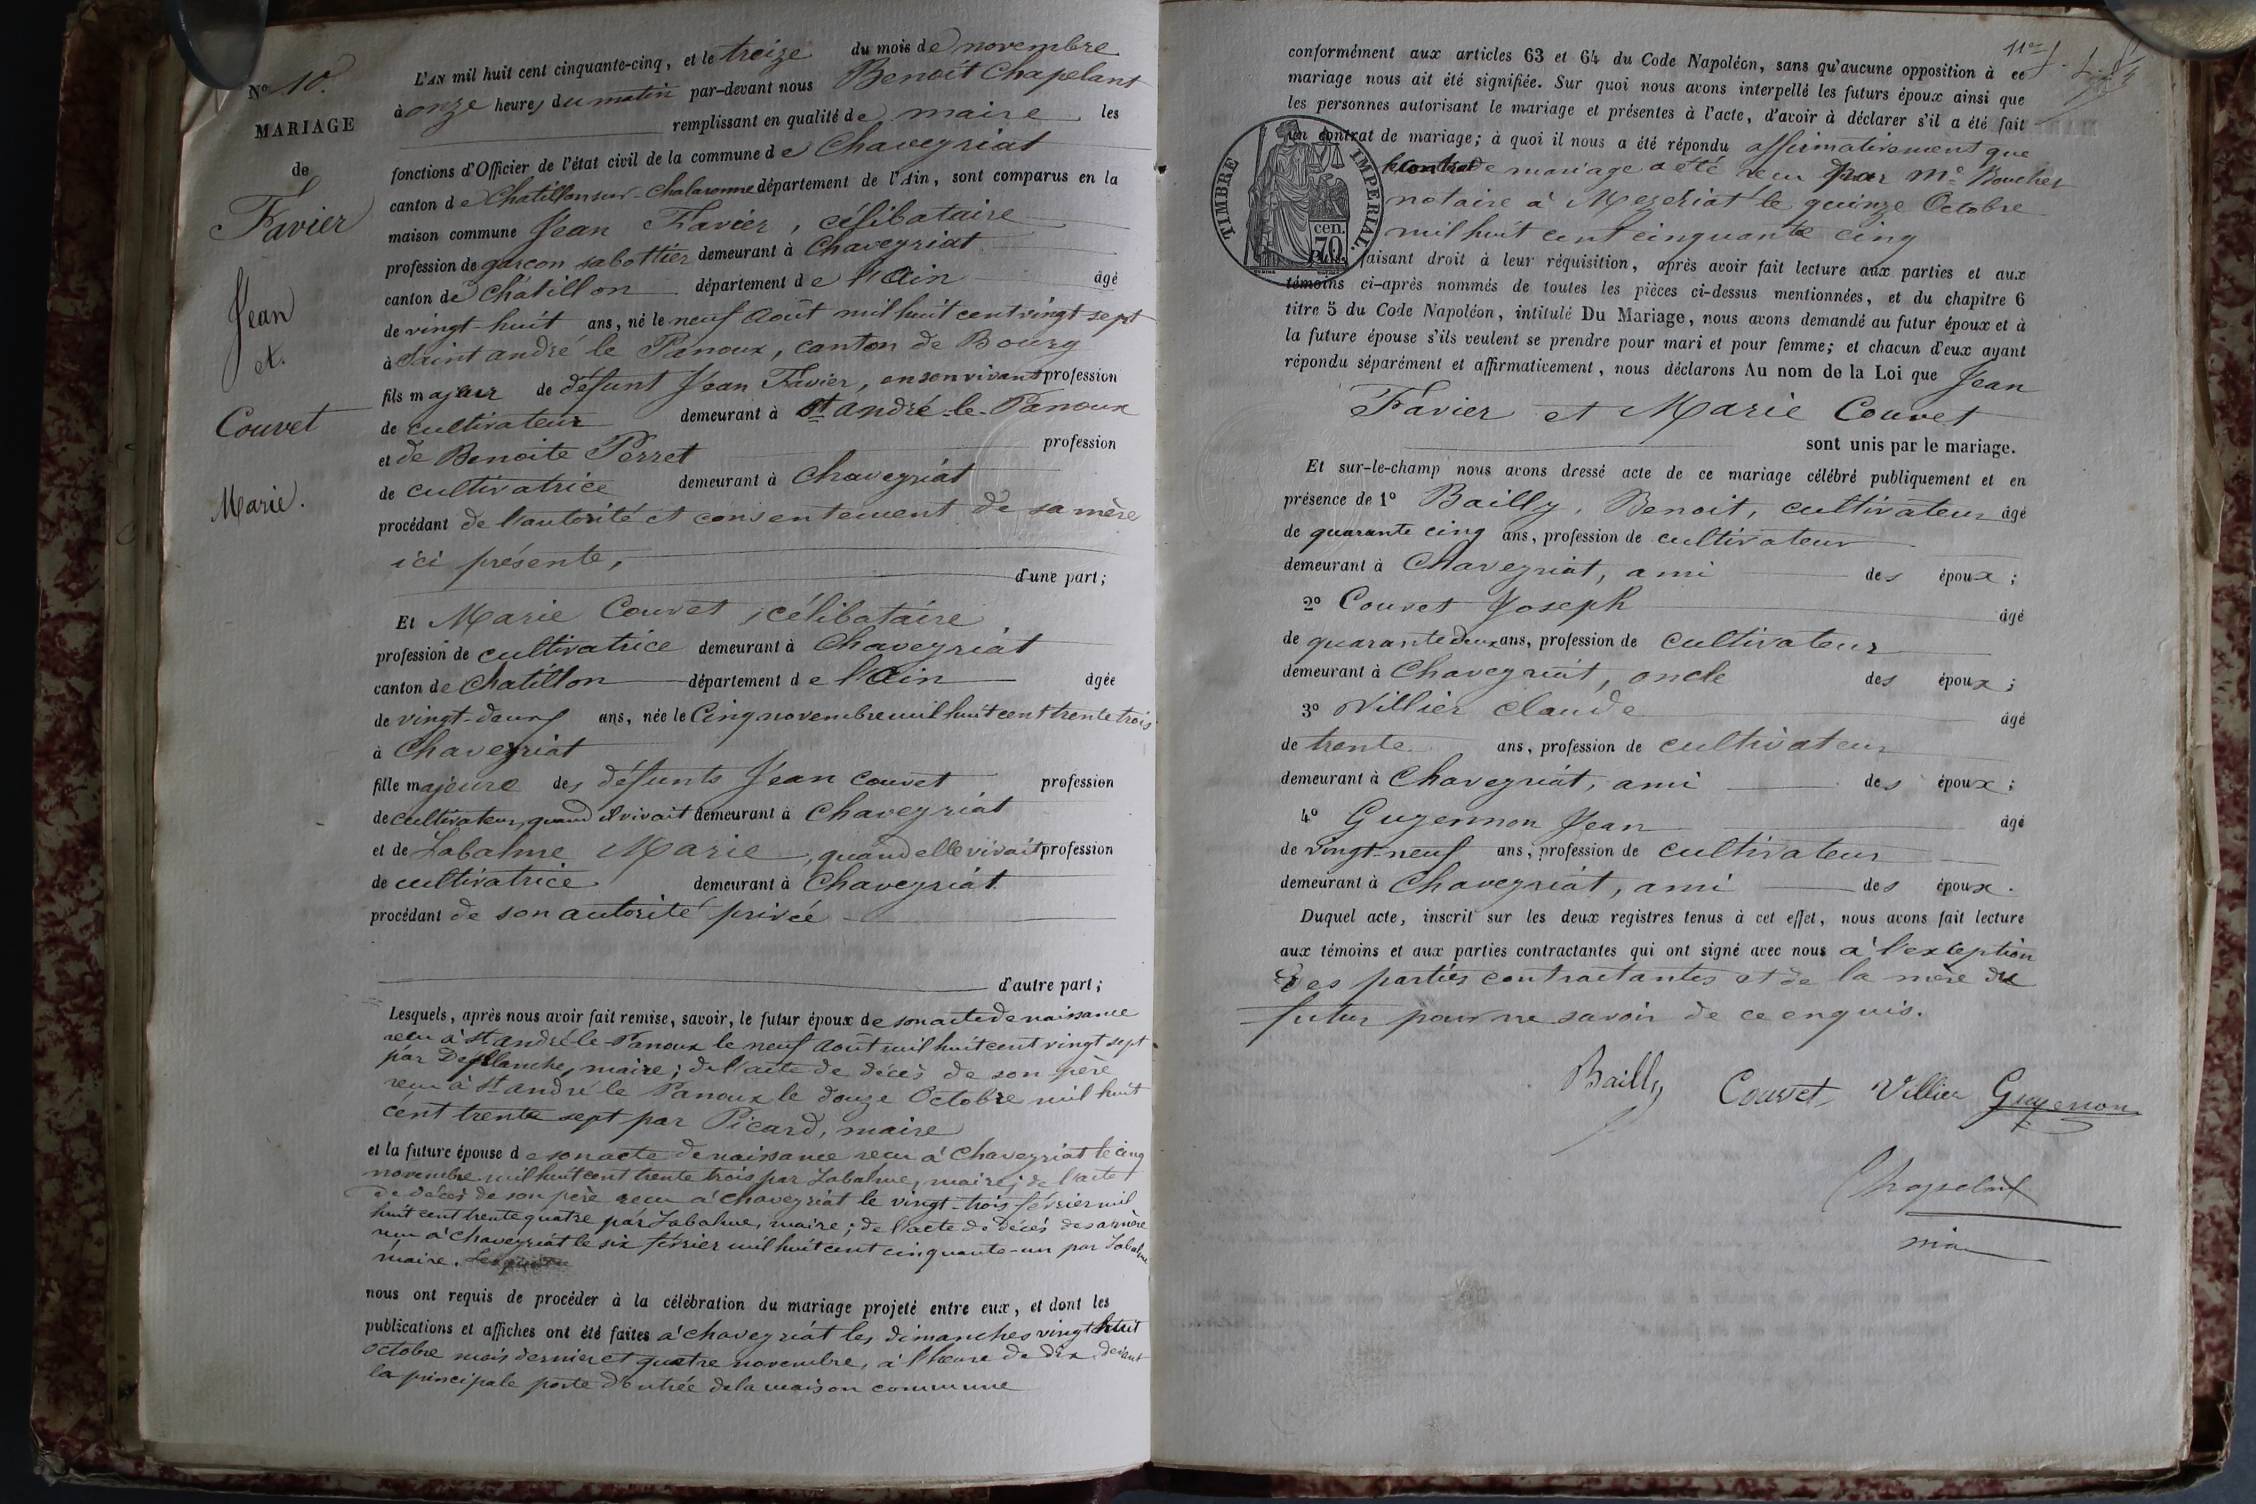 No 10.
MARIAGE
de
Favier
Jean
et.
Couvet
Marie.
L'AN mil huit cent cinquante-cinq, et le treize du mois de novembre
à onze heures du matin par-devant nous Benoit Chapelant
remplissant en qualité de maire les
fonctions d'Officier de l'état civil de la commune de Chaveyriat
canton de Chatillon sur-Chalaronne département de l'Ain, sont comparus en la
maison commune Jean Favier, célibataire
profession de garçon sabottier demeurant à Chaveyriat
canton de Châtillon département de l'Ain âgé
de vingt-huit ans, né le neuf Août mil huit cent vingt sept
à Saint andré le Panoux, canton de Bourg
fils majeur de défunt Jean Favier, en son vivant profession
de cultivateur demeurant à St andré-le-Panoux
et de Benoite Perret profession
de cultivatrice demeurant à Chaveyriat
procédant de l'autorité et consentement de sa mère
ici présente,
d'une part;
Et Marie Couvet, célibataire
profession de cultivatrice demeurant à Chaveyriat
canton de Chatillon département de l'Ain âgée
de vingt-deux ans, née le Cinq novembre mil huit cent trente trois
à Chaveyriat
fille majeure des défunts Jean Couvet profession
de cultivateur, quand il vivait demeurant à Chaveyriat
et de Labalme Marie, quand elle vivait profession
de cultivatrice demeurant à Chaveyriat
procédant de son autorité privée
d'autre part;
Lesquels, après nous avoir fait remise, savoir, le futur époux de son acte de naissance
reçu à St andré-le-Panoux le neuf aout mil huit cent vingt sept
par Desplanche, maire; de l'acte de décès de son père
reçu à St andré le Panoux le douze Octobre mil huit
cent trente sept par Picard, maire
et la future épouse de son acte de naissance reçu à Chaveyriat le cinq
novembre mil huit cent trente trois par Labalme, maire; de l'acte
de décès de son père reçu à Chaveyriat le vingt-trois février mil
huit cent trente quatre par Labalme, maire; de l'acte de décès de sa mère
reçu à Chaveyriat le six février mil huit cent cinquante-un par Labalme
maire.
nous ont requis de procéder à la célébration du mariage projeté entre eux, et dont les
publications et affiches ont été faites à Chaveyriat les dimanches vingt huit
octobre mois dernier et quatre novembre, à l'heure de dix, devant
la principale porte d'entrée de la maison commune
11e
conformément aux articles 63 et 64 du Code Napoléon, sans qu'aucune opposition à ce
mariage nous ait été signifiée. Sur quoi nous avons interpellé les futurs époux ainsi que
les personnes autorisant le mariage et présentes à l'acte, d'avoir à déclarer s'il a été fait
un contrat de mariage; à quoi il nous a été répondu affirmativement que
le contrat de mariage a été reçu par Me Boucher
notaire à Mezeriat le quinze Octobre
mil huit cent cinquante cinq
TIMBRE IMPERIAL.
70 cen.
faisant droit à leur réquisition, après avoir fait lecture aux parties et aux
témoins ci-après nommés de toutes les pièces ci-dessus mentionnées, et du chapitre 6
titre 5 du Code Napoléon, intitulé Du Mariage, nous avons demandé au futur époux et à
la future épouse s'ils veulent se prendre pour mari et pour femme; et chacun d'eux ayant
répondu séparément et affirmativement, nous déclarons Au nom de la Loi que Jean
Favier et Marie Couvet
sont unis par le mariage.
Et sur-le-champ nous avons dressé acte de ce mariage célébré publiquement et en
présence de 1º Bailly, Benoit, cultivateur âgé
de quarante cinq ans, profession de cultivateur
demeurant à Chaveyriat, ami des époux;
2º Couvet Joseph âgé
de quarante deux ans, profession de cultivateur
demeurant à Chaveyriat, oncle des époux;
3º Villier Claude âgé
de trente ans, profession de cultivateur
demeurant à Chaveyriat, ami des époux;
4º Guyennon Jean âgé
de vingt-neuf ans, profession de cultivateur
demeurant à Chaveyriat, ami des époux.
Duquel acte, inscrit sur les deux registres tenus à cet effet, nous avons fait lecture
aux témoins et aux parties contractantes qui ont signé avec nous à l'exception
des parties contractantes et de la mère du
futur pour ne savoir de ce enquis.
Bailly Couvet Villier Guyenon
Chapelant
maire